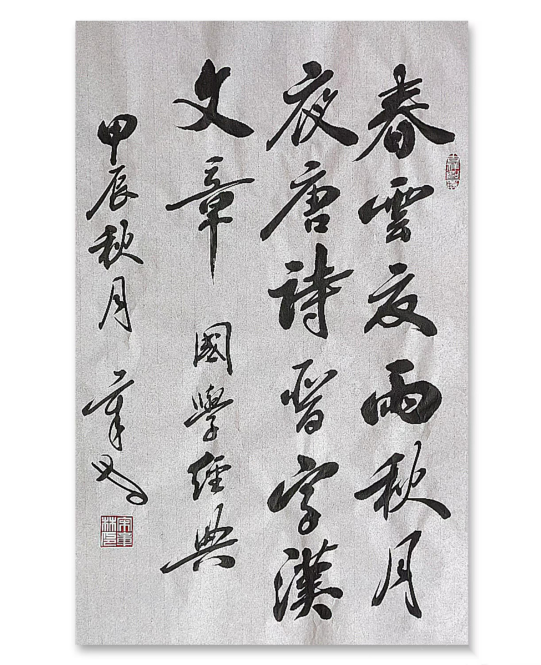 春雲夏雨秋月
夜唐詩晉字漢
文章 國學經典
甲辰秋月